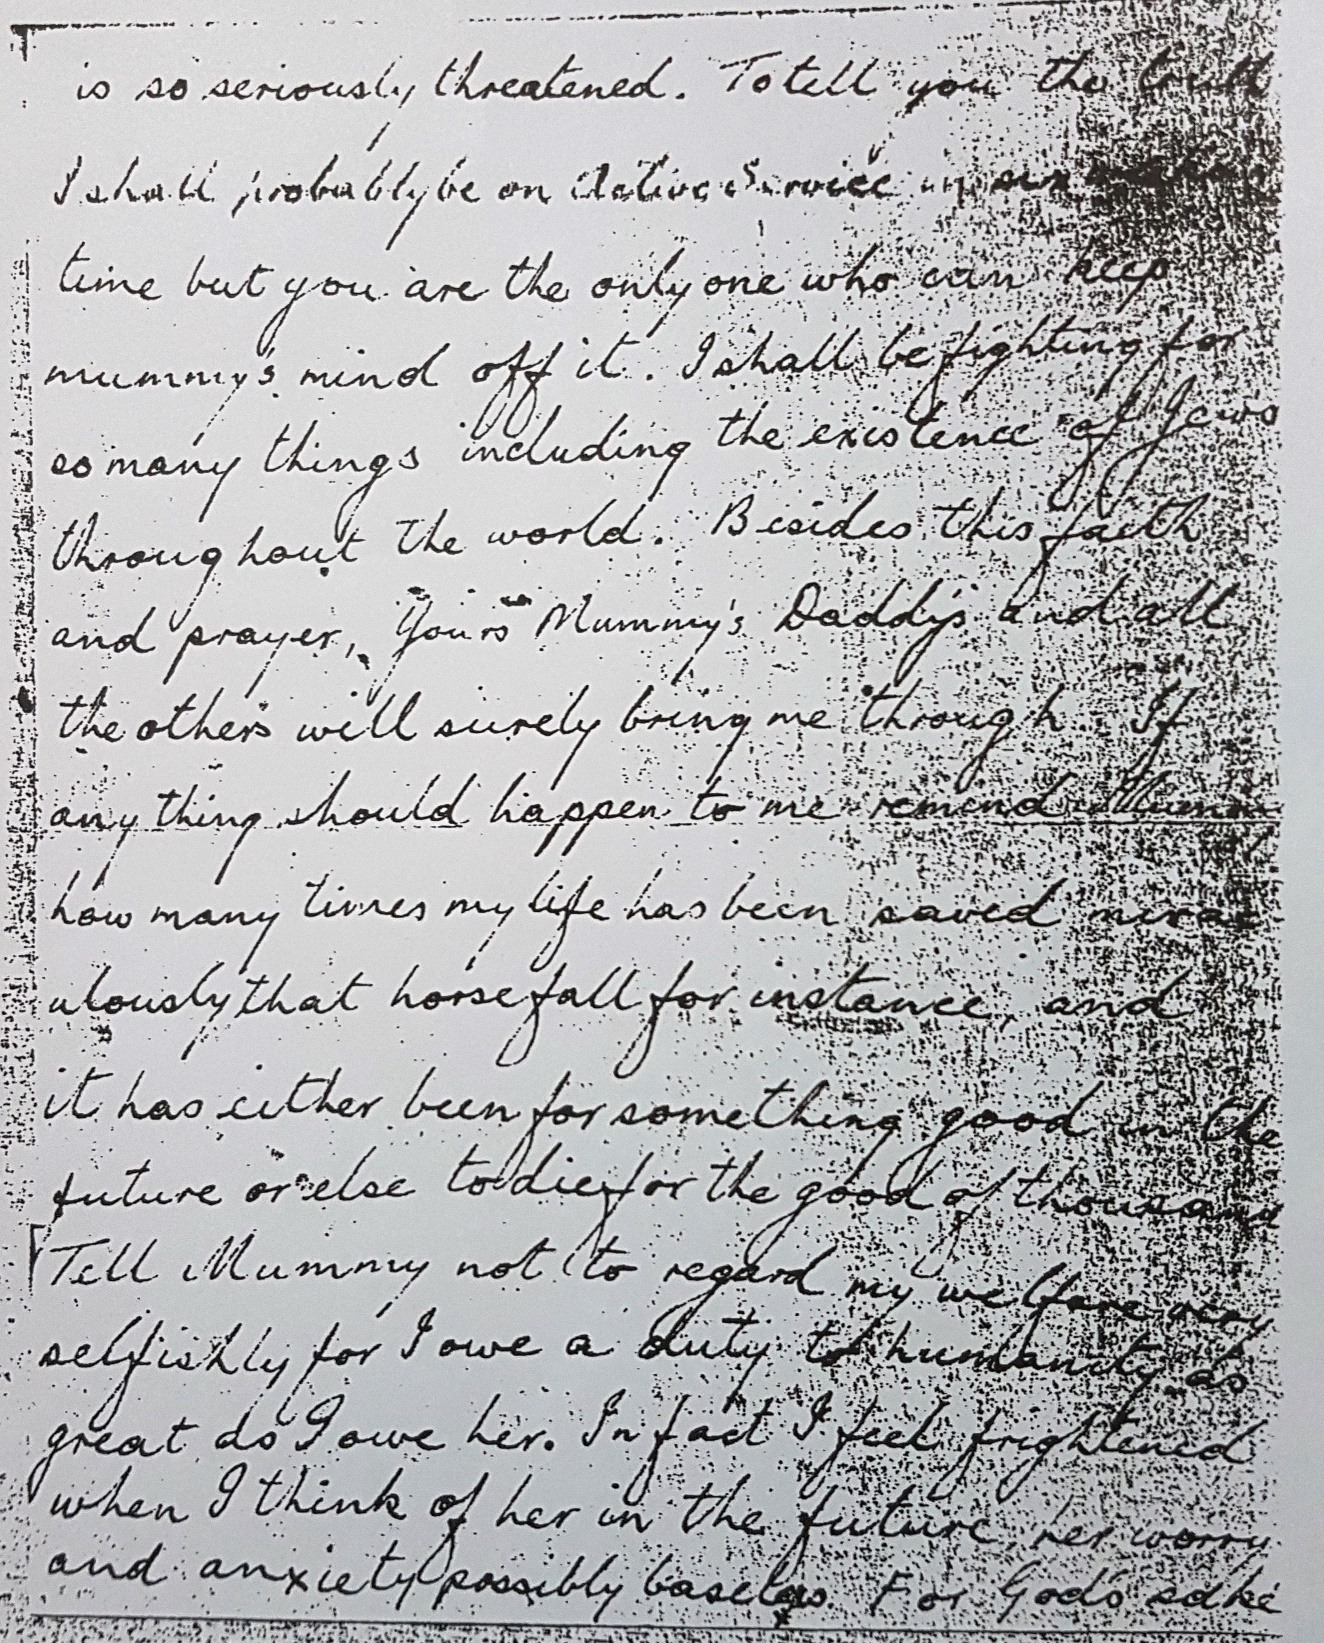 is so seriously threatened. To tell you the truth
I shall probably be on Active Service in six weeks
time but you are the only one who can keep
mummy's mind off it. I shall be fighting for
so many things including the existence of Jews
throughout the world. Besides this faith
and prayer, Yours Mummy's Daddy's and all
the others will surely bring me through. If
anything should happen to me remind
how many times my life has been saved mirac
ulously that horse fall for instance, and
it has either been for something good in the
future or else to die for the good of thousands
Tell Mummy not to regard my welfare very
selfishly for I owe a duty to humanity as
great as I owe her. In fact I feel frightened
when I think of her in the future, her worry
and anxiety possibly baseless. For God's sake